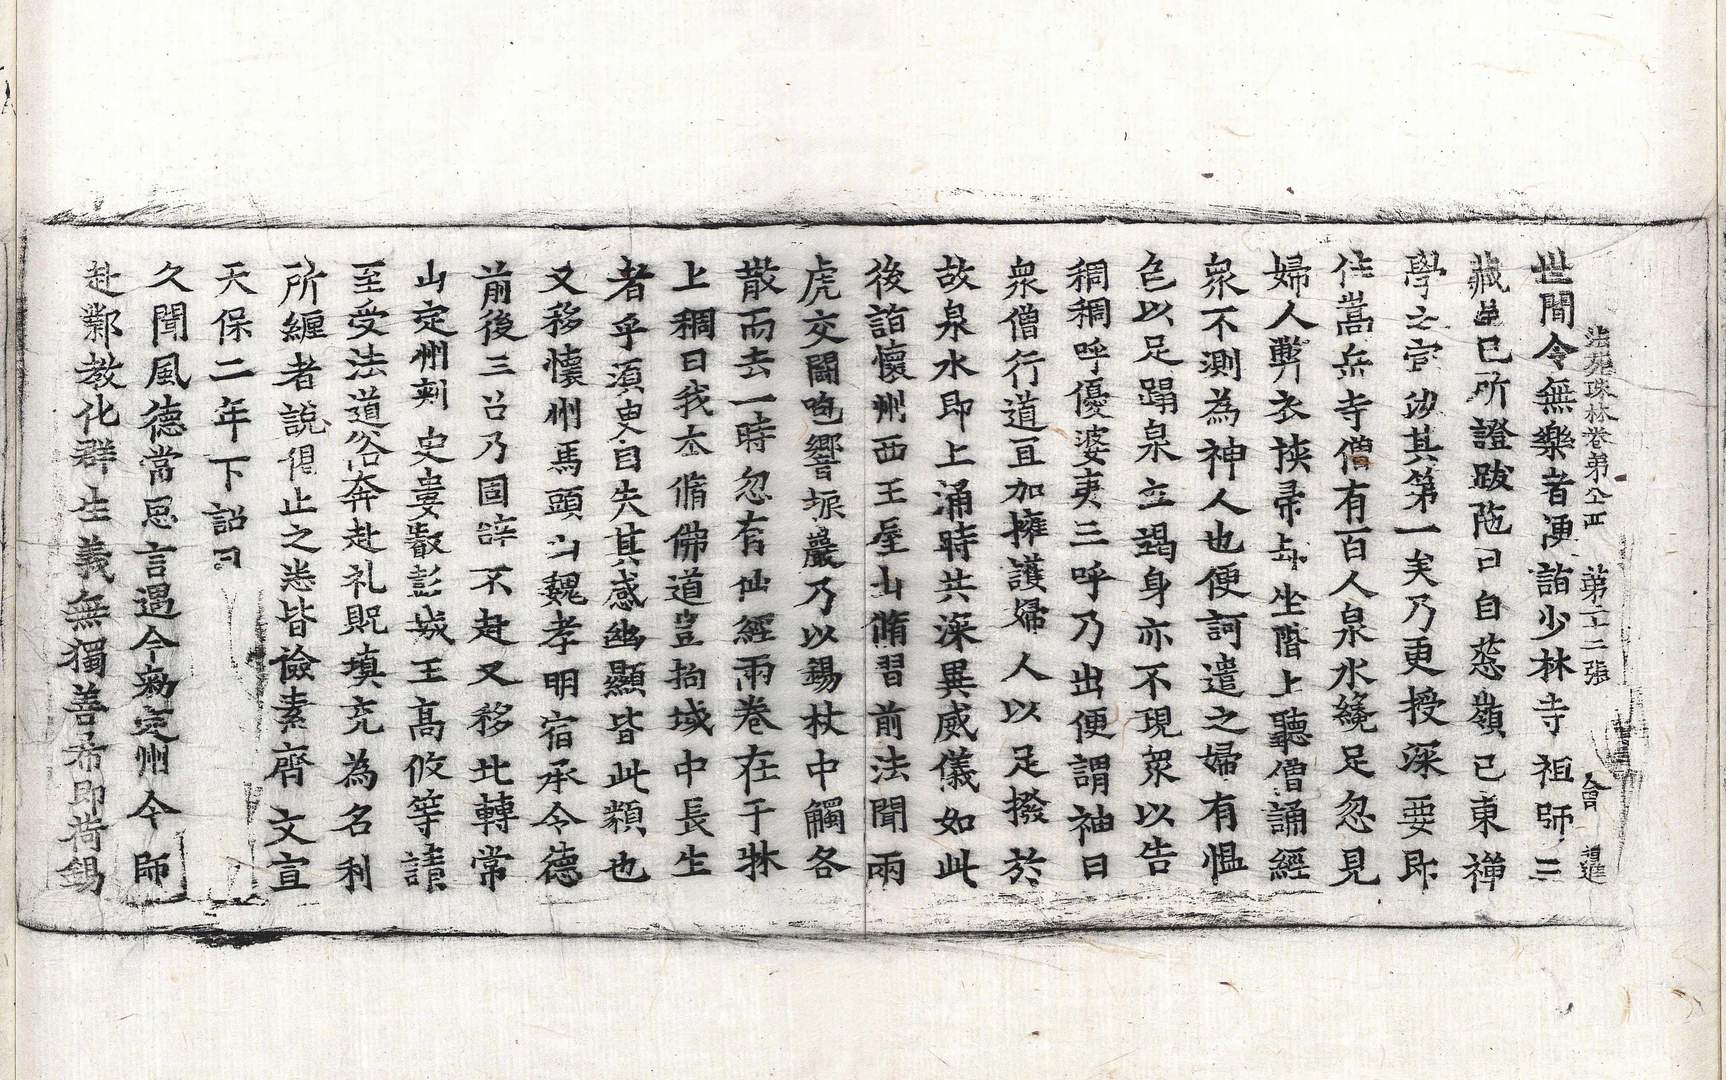 法苑珠林卷第八十四 第二十二張 會
世間令無樂者便詣少林寺祖師三
藏呈己所證跋陁曰自葱嶺已東禪
學之家汝其第一矣乃更授深要即
住嵩岳寺僧有百人泉水纔足忽見
婦人弊衣挾帚却坐階上聽僧誦經
衆不測為神人也便訶遣之婦有慍
色以足蹋泉立竭身亦不現衆以告
稠稠呼優婆夷三呼乃出便謂神曰
衆僧行道宜加擁護婦人以足撥於
故泉水即上涌時共深異威儀如此
後詣懷州西王屋山脩習前法聞兩
虎交鬪咆響振巖乃以錫杖中觸各
散而去一時忽有仙經兩卷在于牀
上稠曰我本脩佛道豈拘域中長生
者乎須臾自失其感幽顯皆此類也
又移懷州馬頭山魏孝明宿承令德
前後三召乃固辝不赴又移北轉常
山定州刺史婁叡彭城王高攸等請
至受法道俗奔赴礼貺填充為名利
所纏者說偈止之悉皆儉素齊文宣
天保二年下詔曰
久聞風德常思言遇今勑定州令師
赴鄴教化群生義無獨善希即荷錫